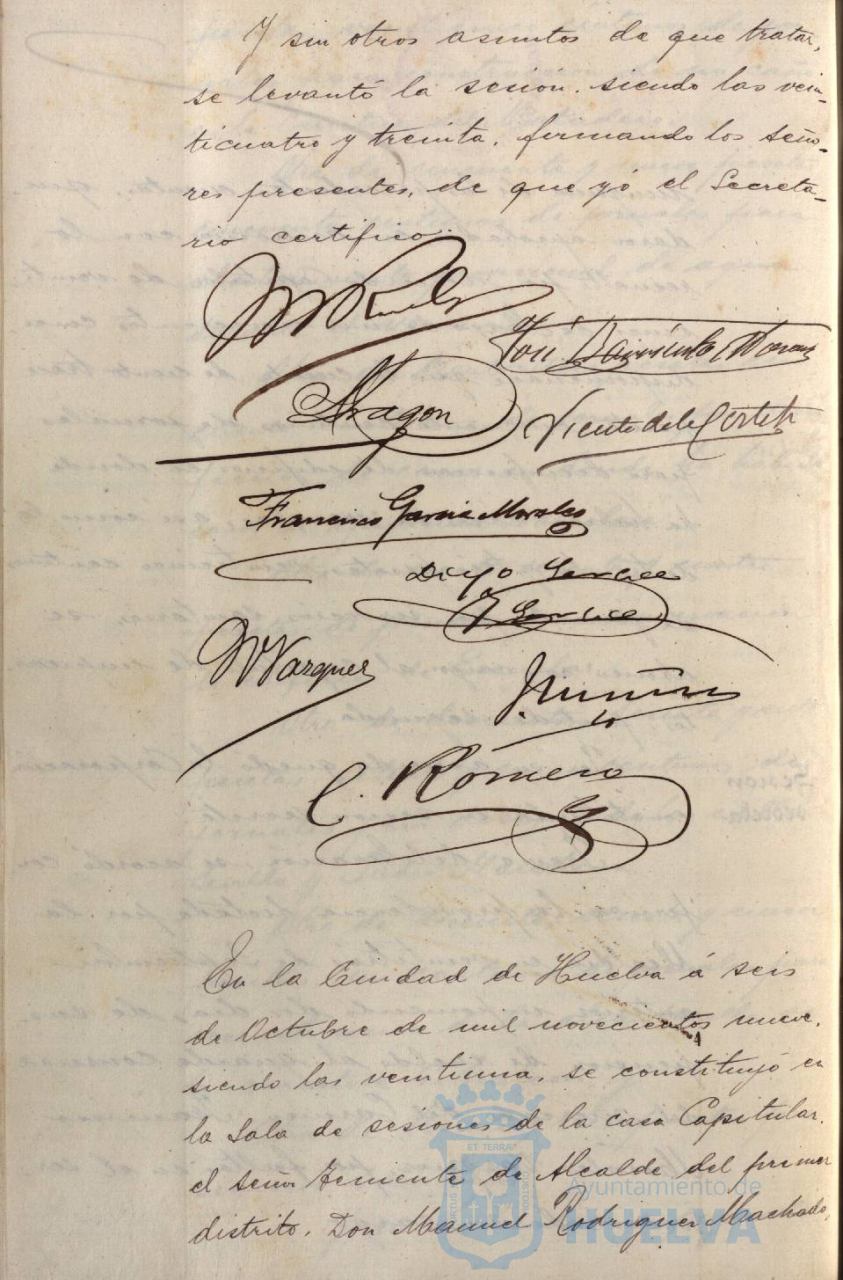 Y sin otros asuntos de que tratar,
se levantó la sesión, siendo las vein-
ticuatro y treinta, firmando los seño-
res presentes, de que yó el Secreta-
rio certifico.
José Barriento
Aragon
Vicente de la Corte
Francisco Garcia Morales
Diego
M Vazquez
C. Romero
En la Ciudad de Huelva á seis
de Octubre de mil novecientos nueve,
siendo las veintiuna, se constituyó en
la Sala de sesiones de la casa Capitular,
el señor Teniente de Alcalde del primer
distrito, Don Manuel Rodriguez Machado,
ET TERRÆ
Ayuntamiento de
HUELVA